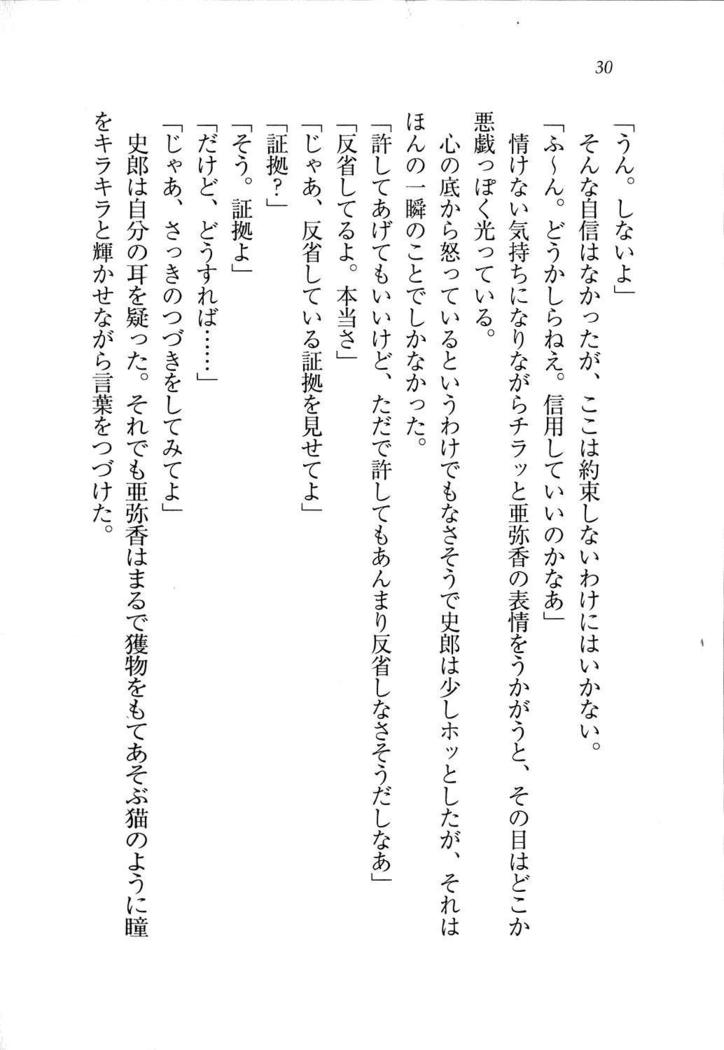 30
「うん。しないよ」
そんな自信はなかったが、ここは約束しないわけにはいかない。
「ふ〜ん。どうかしらねえ。信用していいのかなあ」
情けない気持ちになりながらチラッと亜弥香の表情をうかがうと、その目はどこか
悪戯っぽく光っている。
心の底から怒っているというわけでもなさそうで史郎は少しホッとしたが、それは
ほんの一瞬のことでしかなかった。
「許してあげてもいいけど、ただで許してもあんまり反省しなさそうだしなあ」
「反省してるよ。本当さ」
「じゃあ、反省している証拠を見せてよ」
「証拠？」
「そう。証拠よ」
「だけど、どうすれば……」
「じゃあ、さっきのつづきをしてみてよ」
史郎は自分の耳を疑った。それでも亜弥香はまるで獲物をもてあそぶ猫のように瞳
をキラキラと輝かせながら言葉をつづけた。